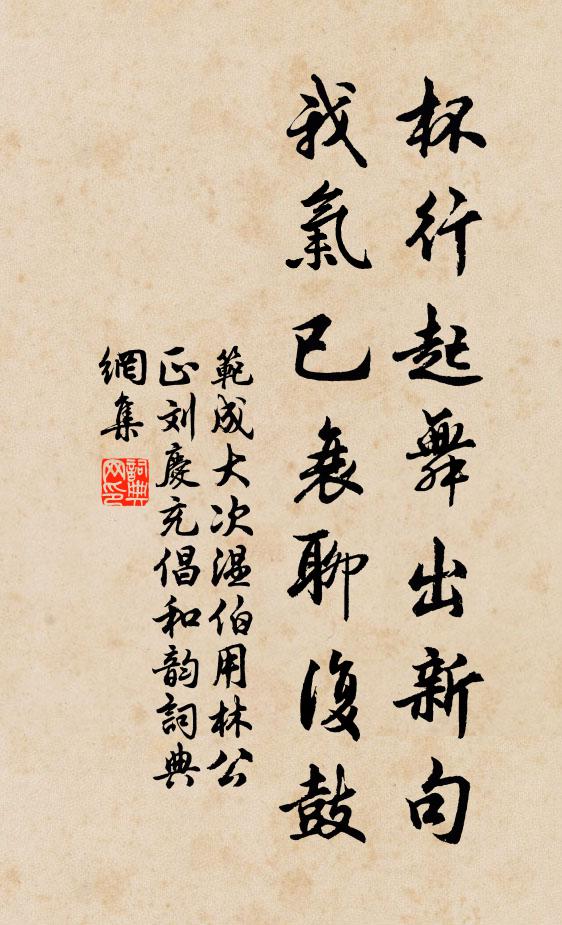 杯行起舞出新句
我氣已衰聊復鼓
範成大次溫伯用林公
正刘慶充倡和韵詞典
網集
詞典網印